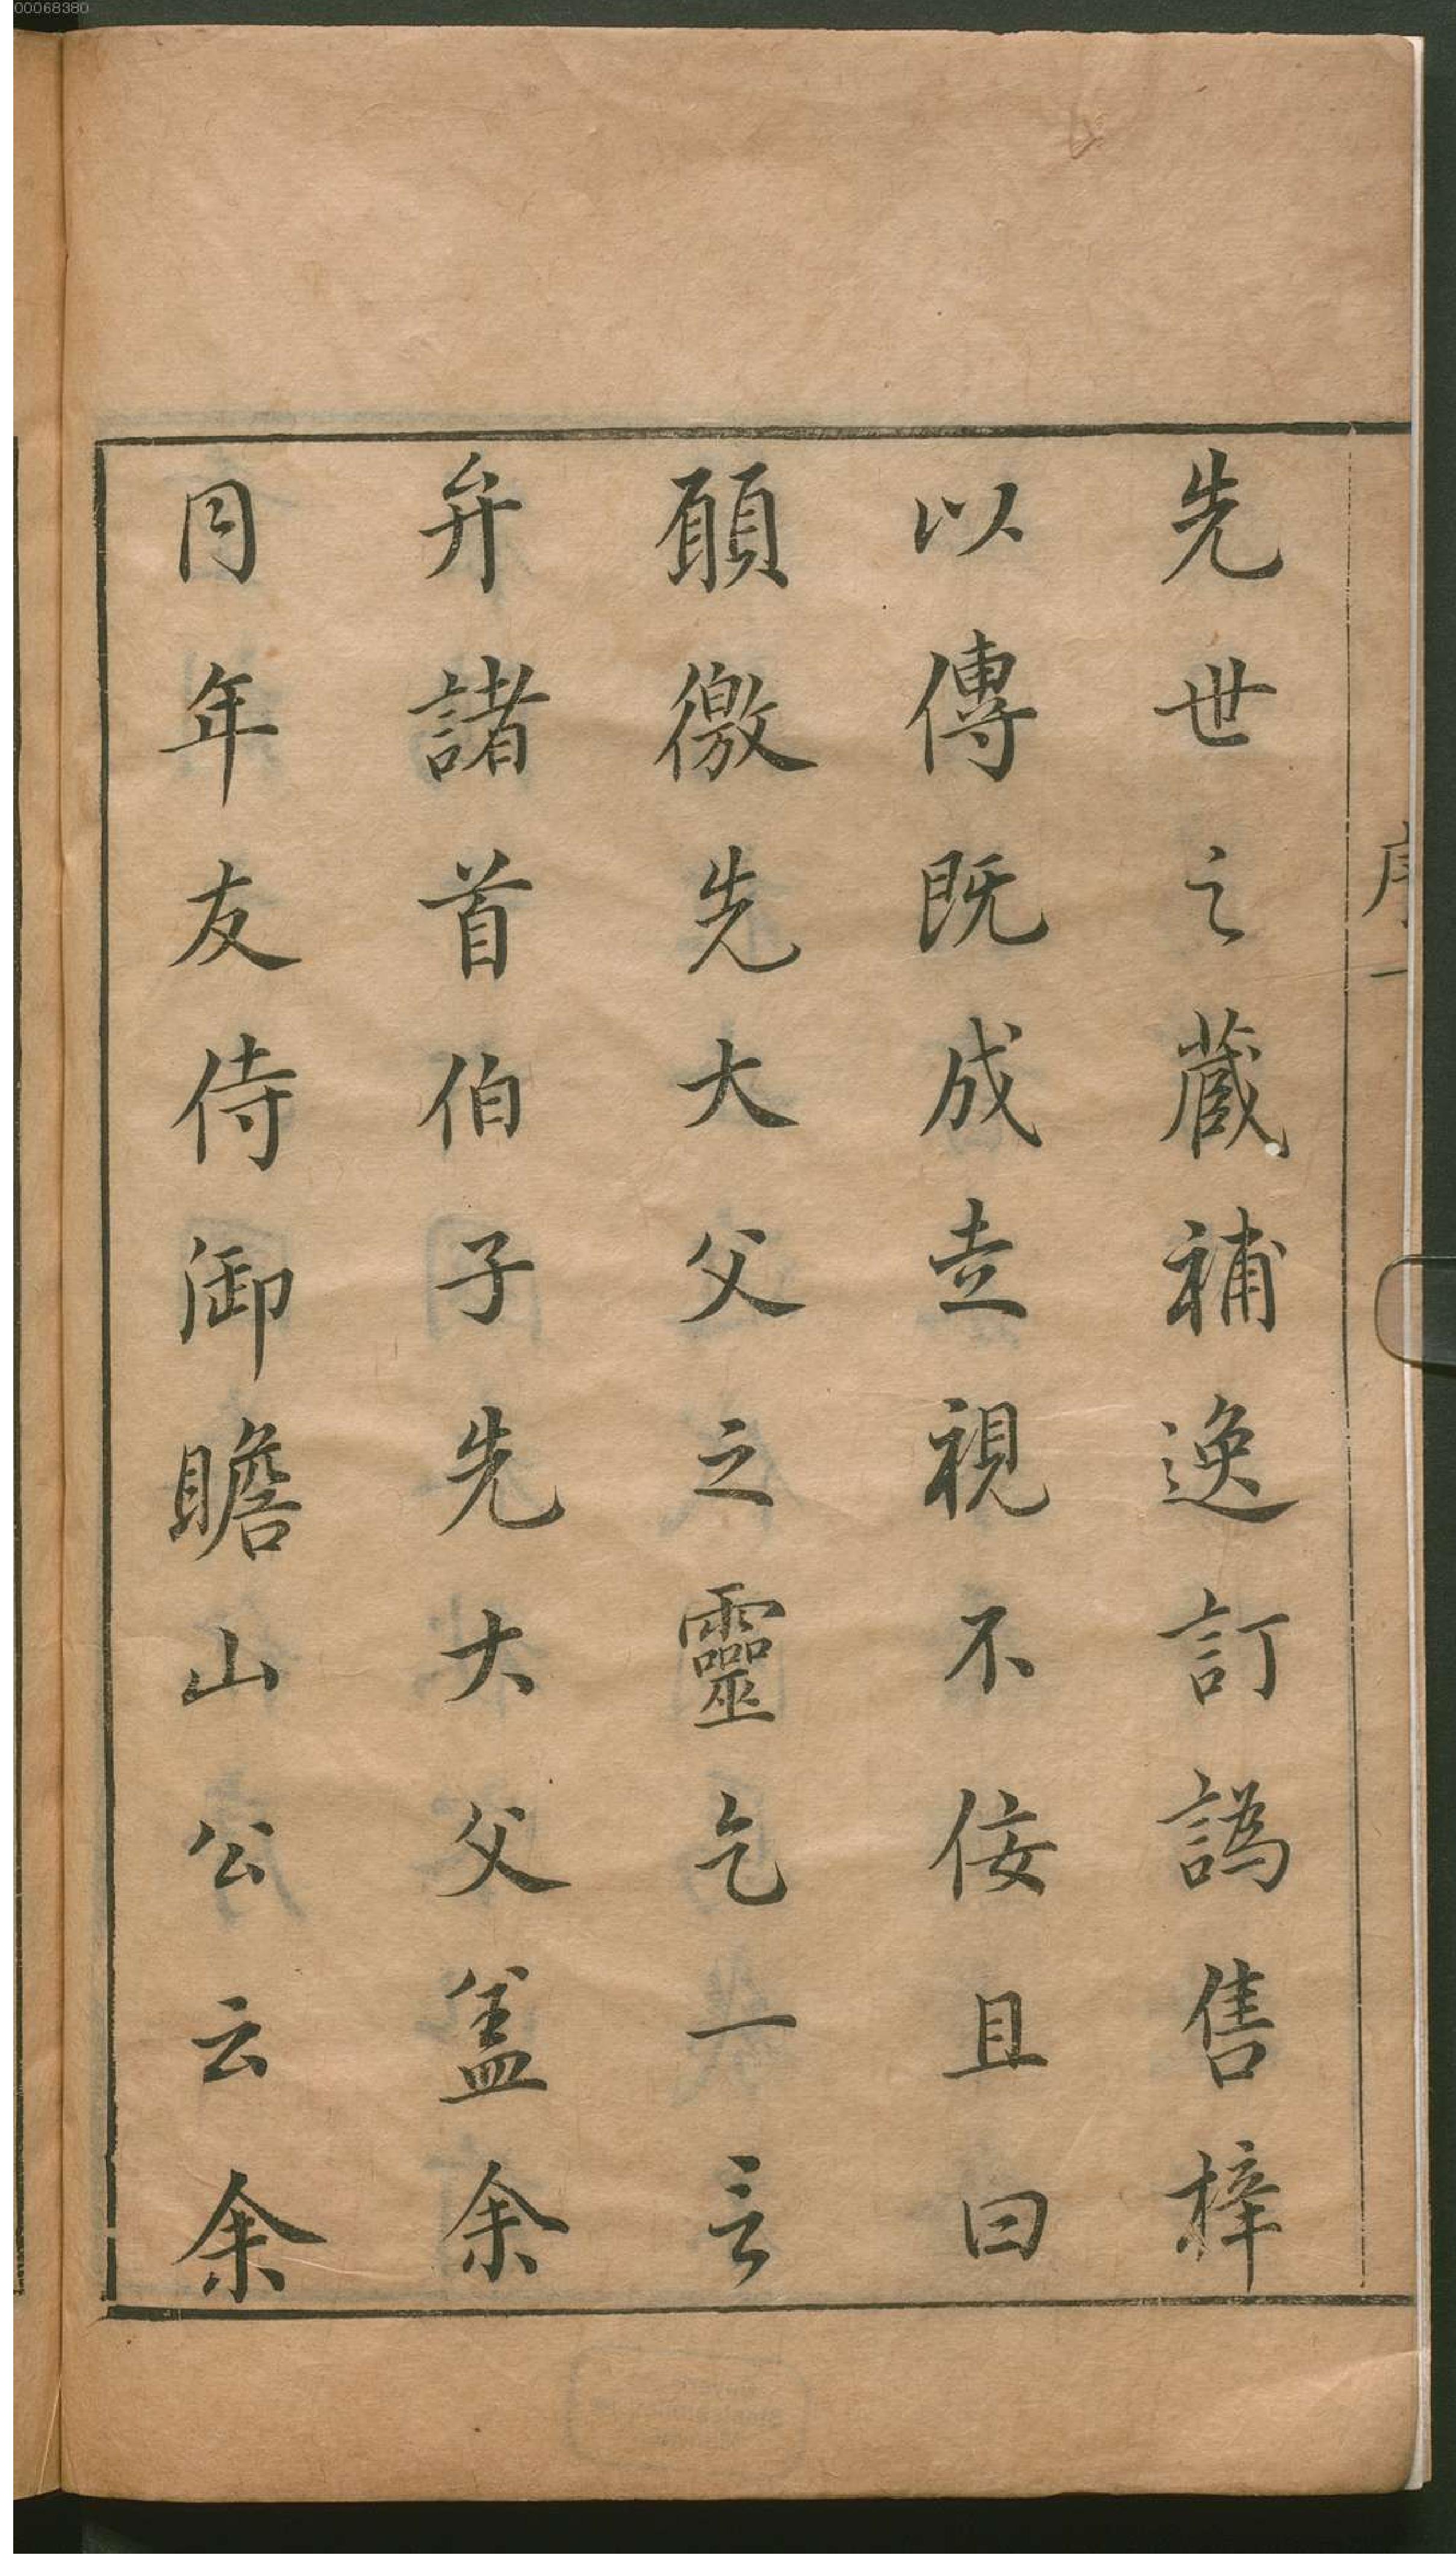 00068380
序一
先世之蔵補逸訂譌售梓
以傳既成赱視不佞且曰
願徼先大父之靈乞一言
弁諸首伯子先大父盖余
同年友侍御瞻山公云余